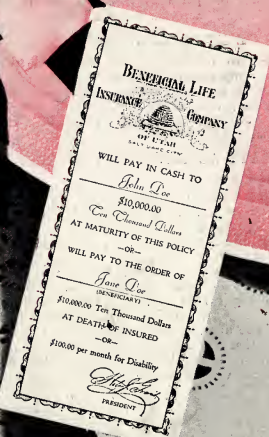 BENEFICIAL LIFE
INSURANCE COMPANY
OF UTAH
SALT LAKE CITY
WILL PAY IN CASH TO
John Doe
$10,000.00
Ten Thousand Dollars
AT MATURITY OF THIS POLICY
—OR—
WILL PAY TO THE ORDER OF
Jane Doe
(BENEFICIARY)
$10,000.00 Ten Thousand Dollars
AT DEATH OF INSURED
—OR—
$100.00 per month for Disability
PRESIDENT